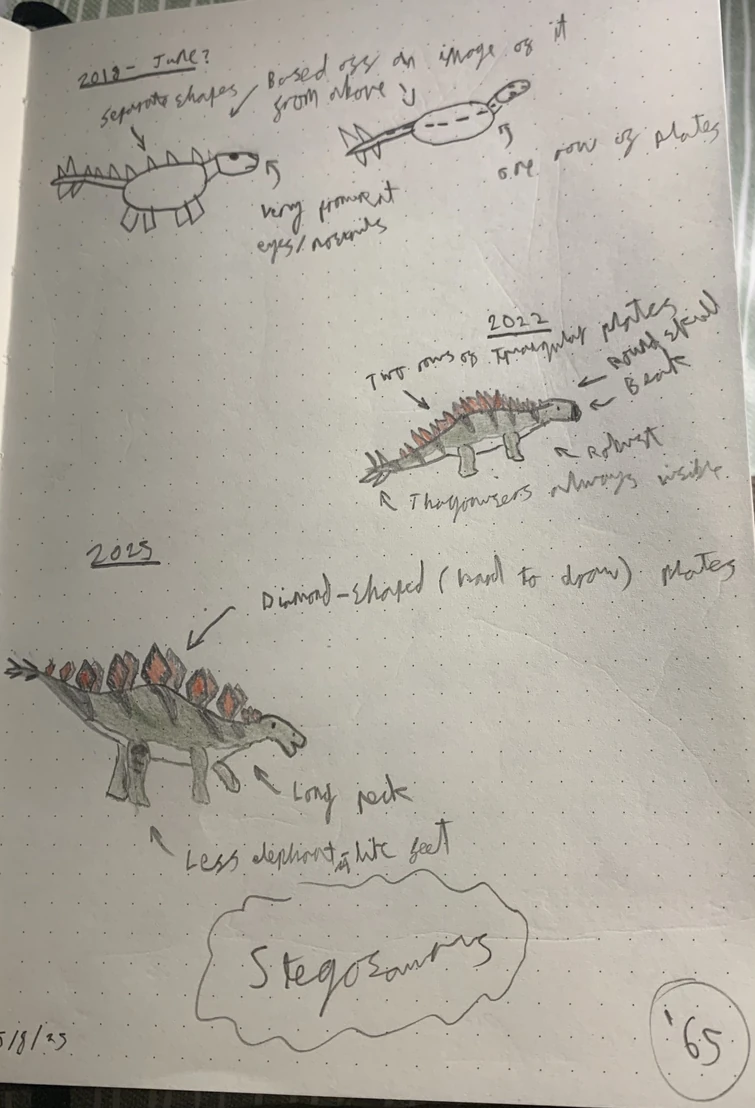 2018 - June?
Separate shapes
Based off an image of it
from above
one row of plates
very prominent
eyes/nostrils
2022
Two rows of triangular plates
Round skull
Beak
Robust
Thagomisers always visible
2025
Diamond-shaped (hard to draw) plates
Long neck
Less elephant-like feet
Stegosaurus
5/8/25
'65